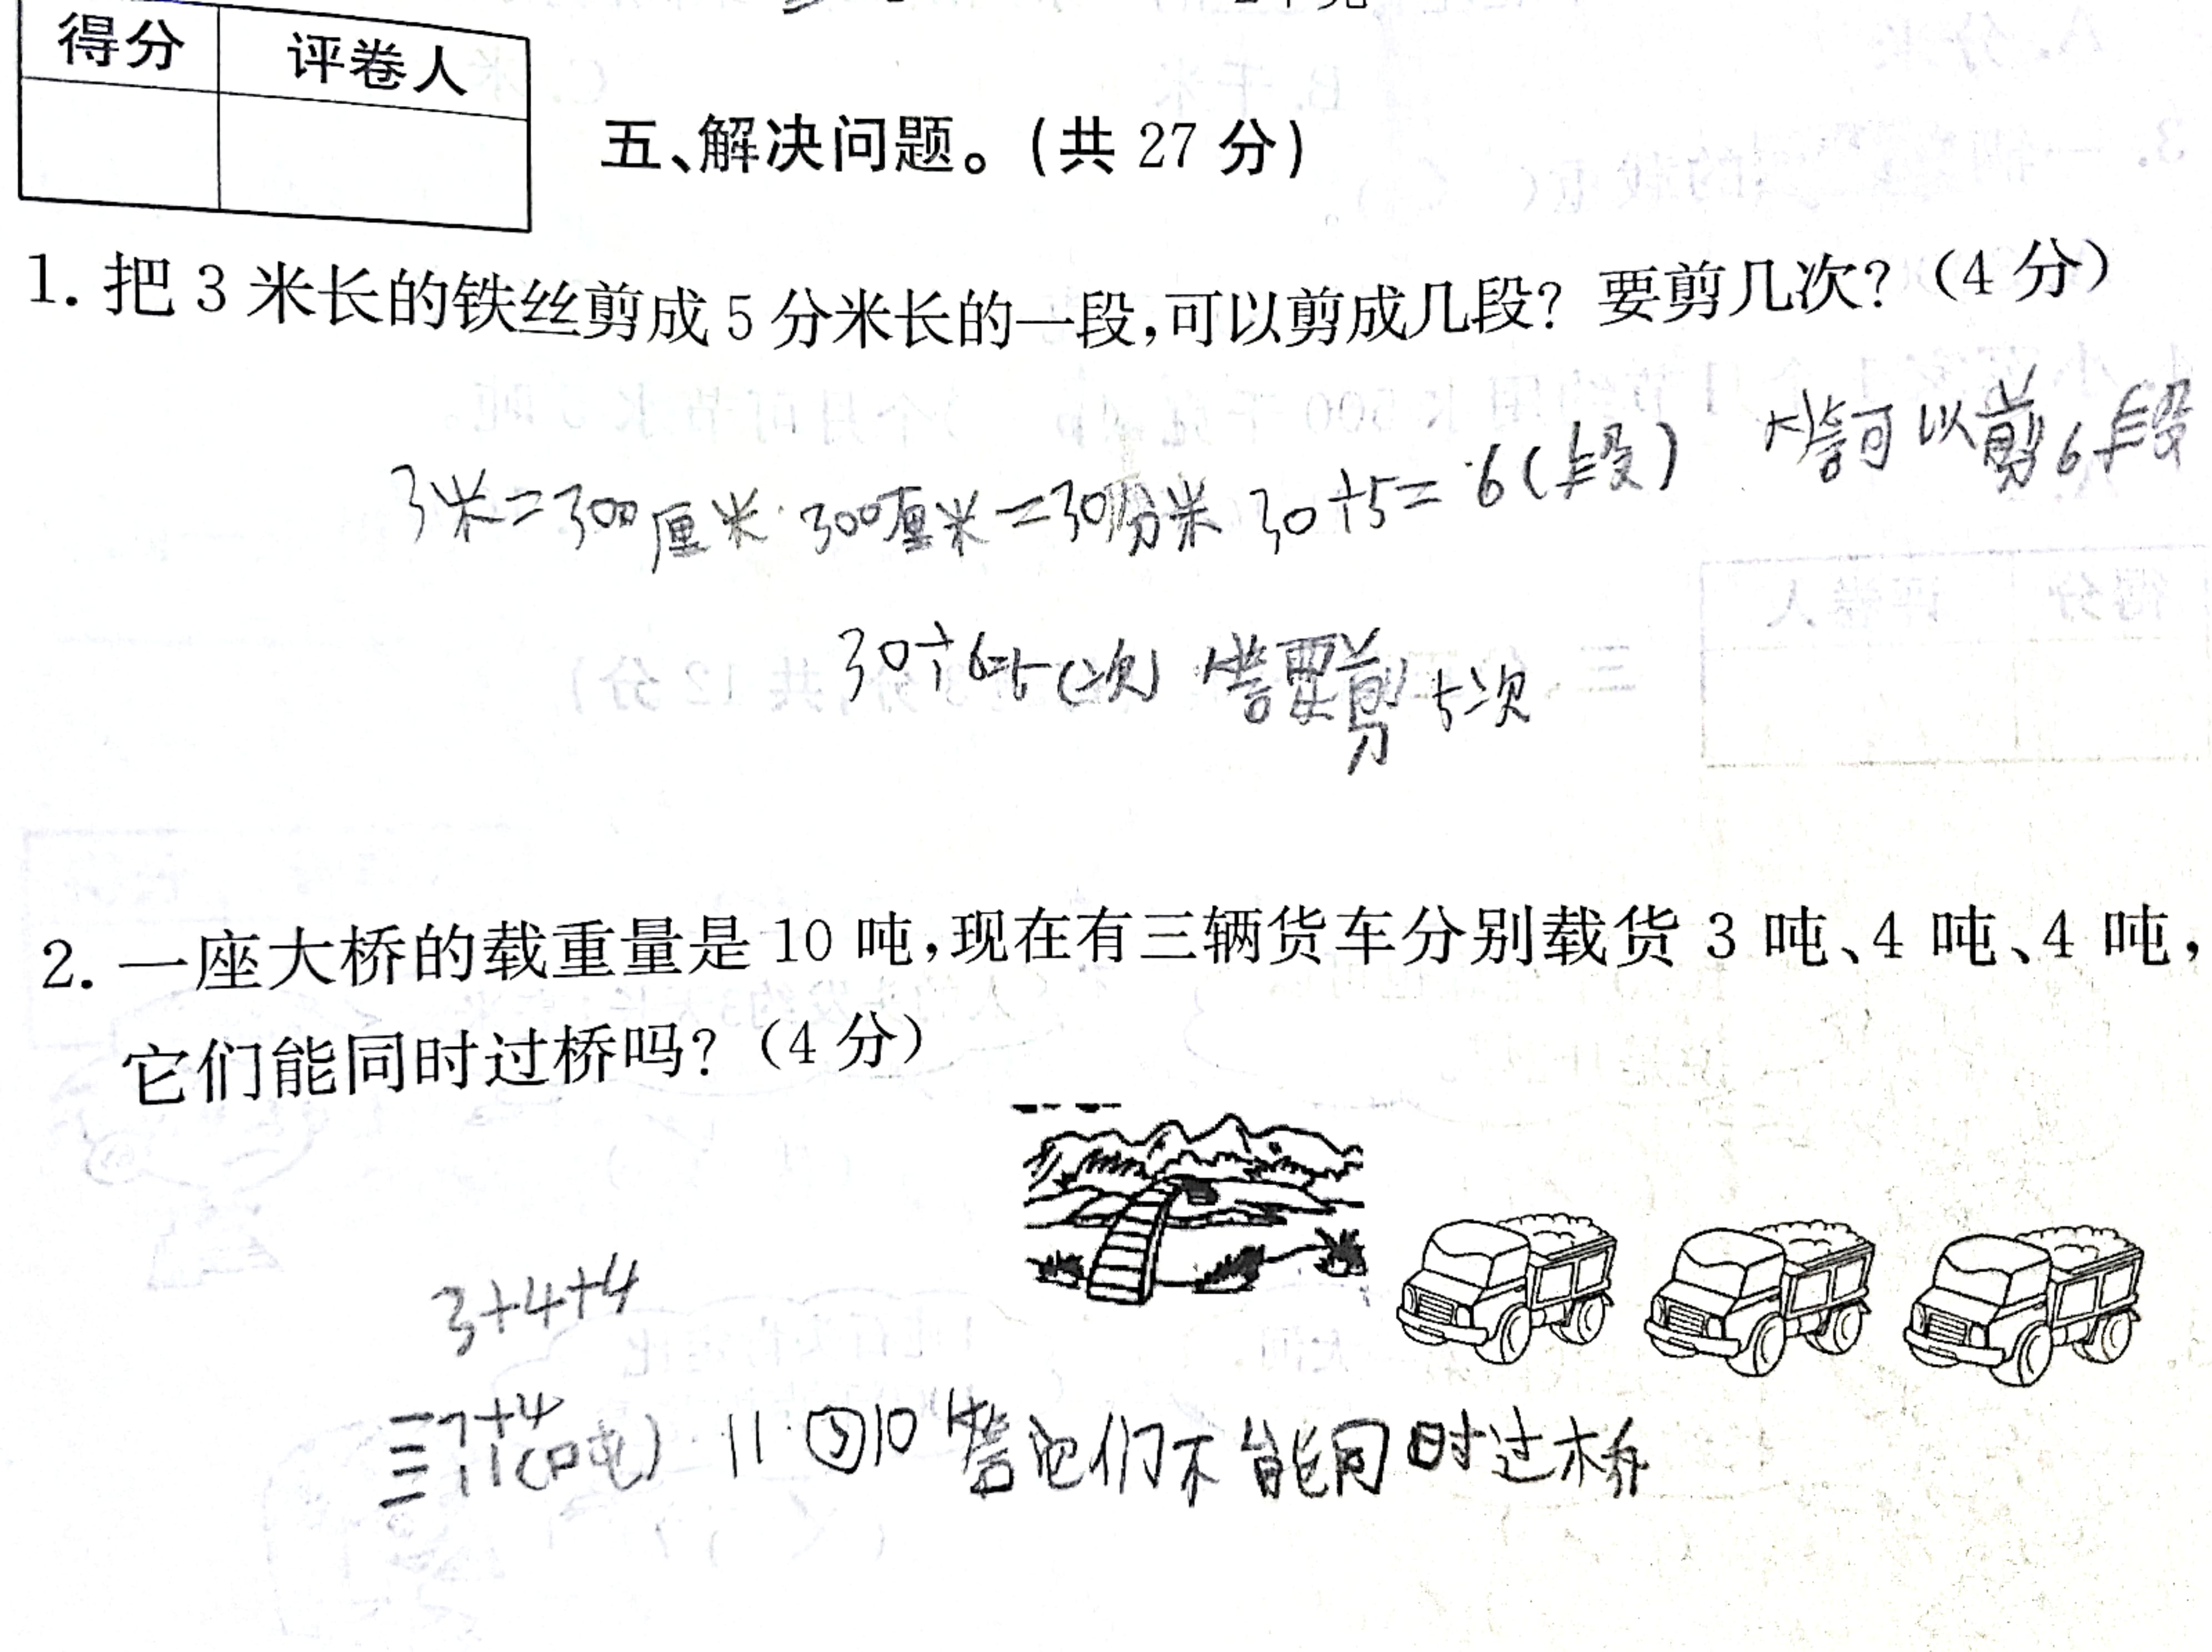 得分 评卷人
五、解决问题。(共 27 分)
1. 把 3 米长的铁丝剪成 5 分米长的一段,可以剪成几段? 要剪几次?(4 分)
3米=300厘米 300厘米=30分米 30÷5=6(段) 答可以剪6段
30÷6=5(次) 答要剪5次
2. 一座大桥的载重量是 10 吨,现在有三辆货车分别载货 3 吨、4 吨、4 吨,
它们能同时过桥吗?(4 分)
3+4+4
=7+4
=11(吨) 11>10 答它们不能同时过桥